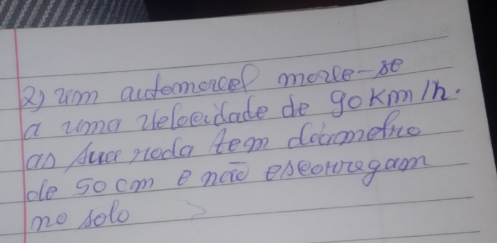 2) um automorcel morve-se
a uma veloeidade de 90 km/h.
as sua roda tem diametro
de 50 cm e não escorregam
no solo